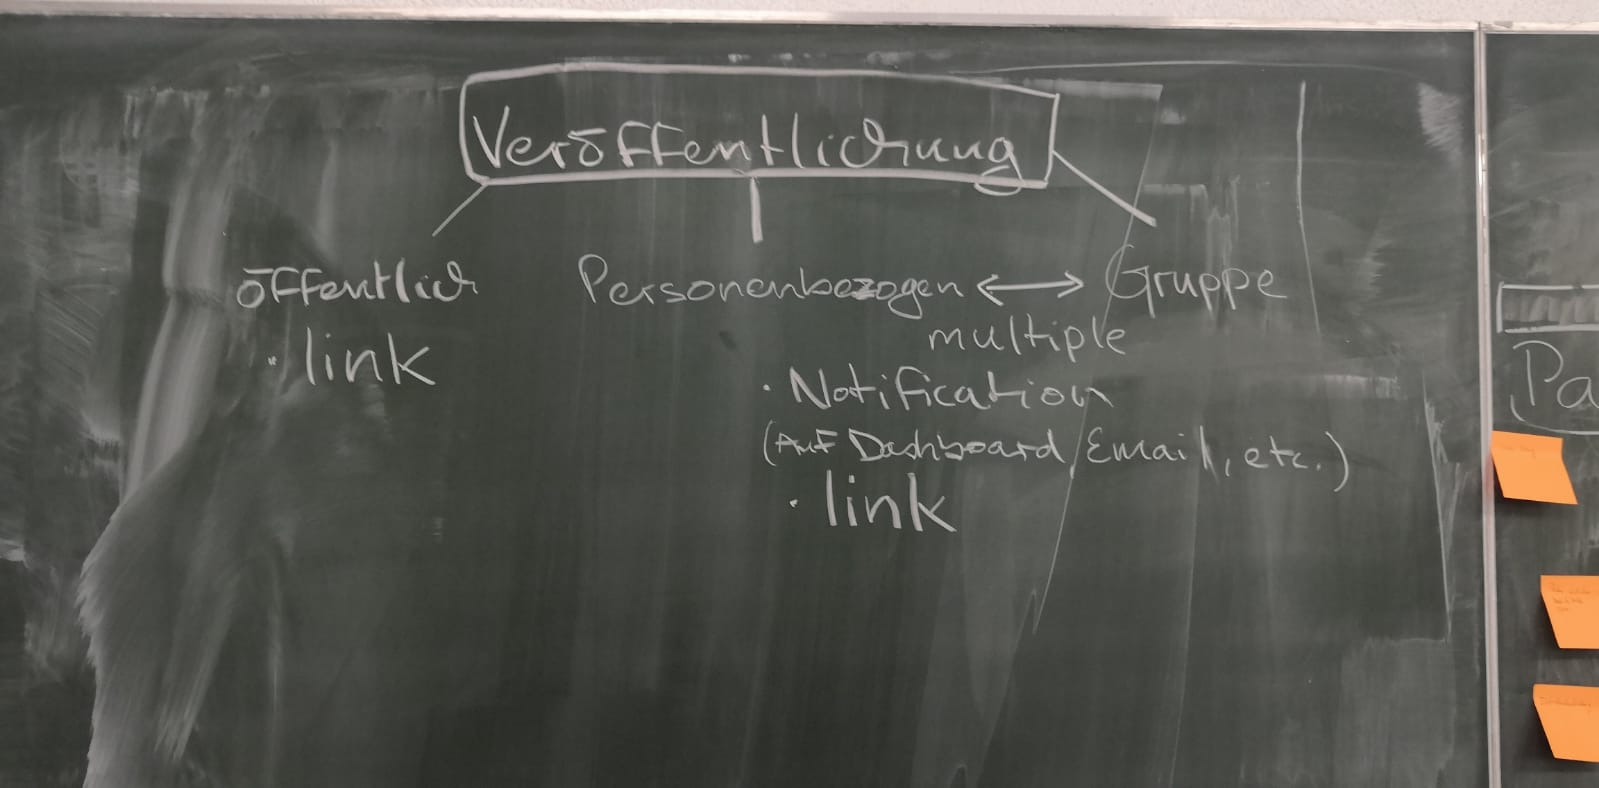 Veröffentlichung
öffentlich
Personenbezogen ↔ Gruppe
multiple
· link
· Notification
(Auf Dashboard, Email, etc.)
· link
Pa